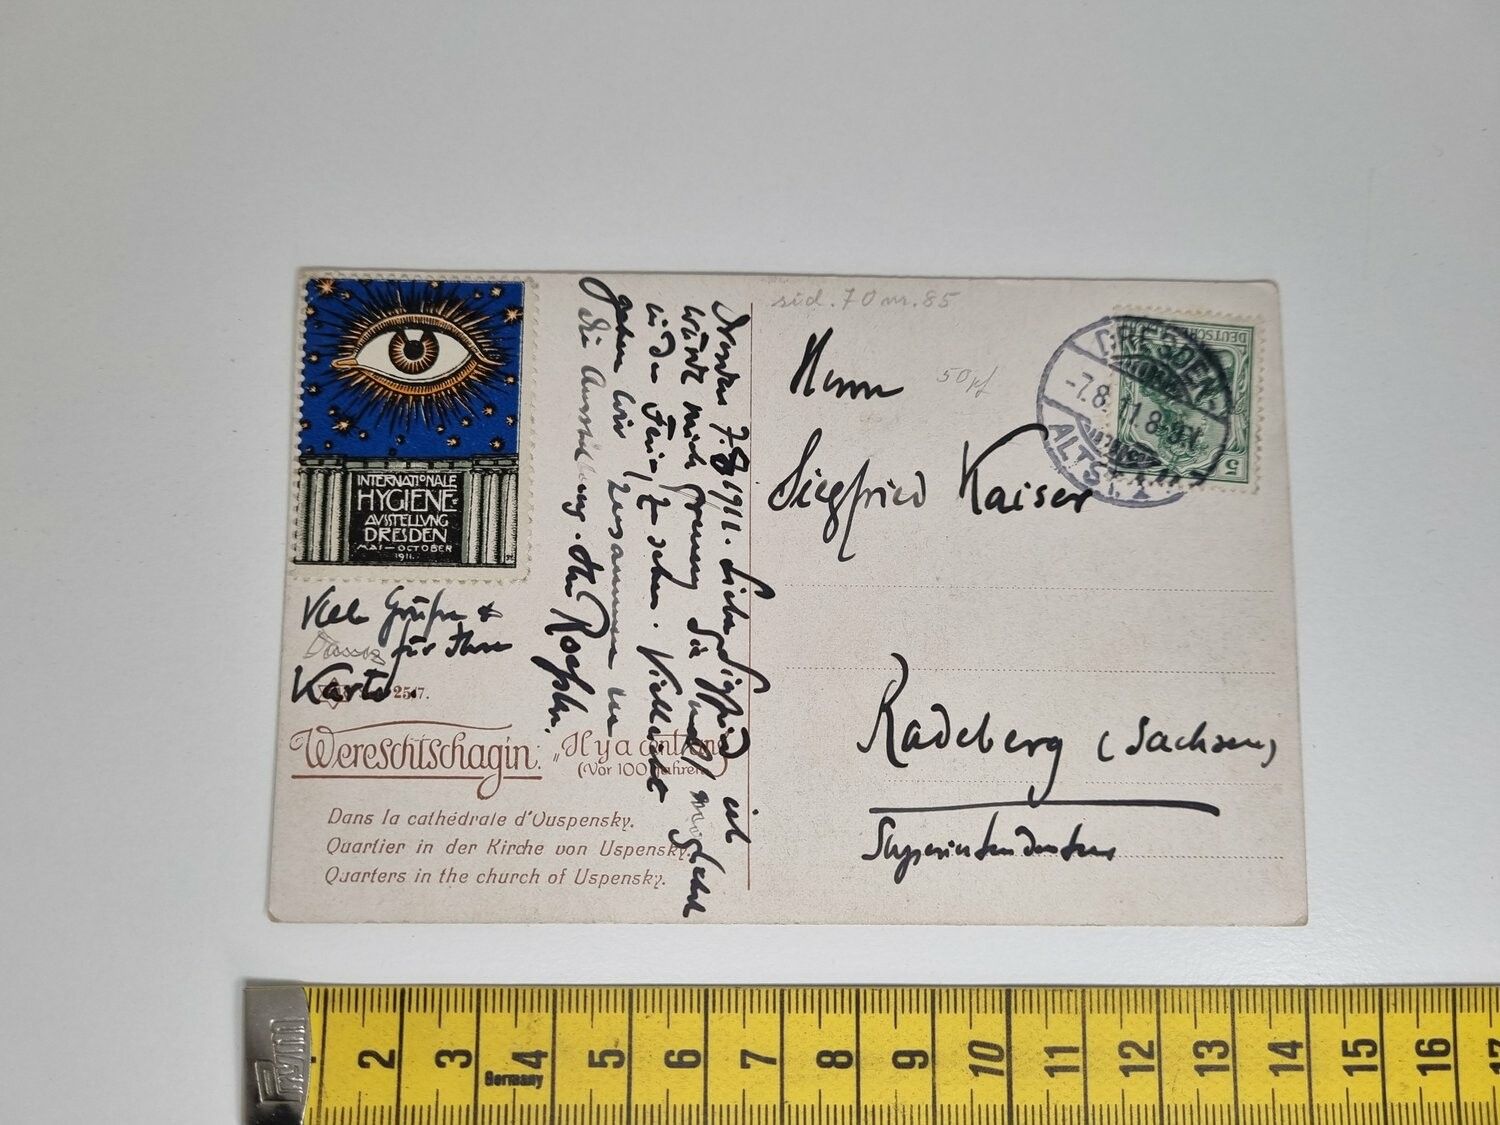 INTERNATIONALE
HYGIENE-
AVSSTELLVNG
DRESDEN
MAI-OCTOBER
1911.
Viele Grüße &
für Ihre
Karte.
2517.
Wereschtschagin: „Il y a cent ans
(Vor 100 Jahren)
Dans la cathédrale d'Ouspensky.
Quartier in der Kirche von Uspensky.
Quarters in the church of Uspensky.
Dresden 7.8.1911. Lieber Siegfried ich
würde mich freuen, Sie
in den Ferien zu sehen. Vielleicht
gehen wir zusammen in
die Ausstellung. Ihr
50 pf
Herrn
Siegfried Kaiser
Radeberg (Sachsen)
Superintendentur
DRESDEN-
-7.8.11.8-9V
ALTST. 1
DEUTSCHES
5
Prym
2 3 4 5 6 7 8 9 10 11 12 13 14 15 16 17
Germany